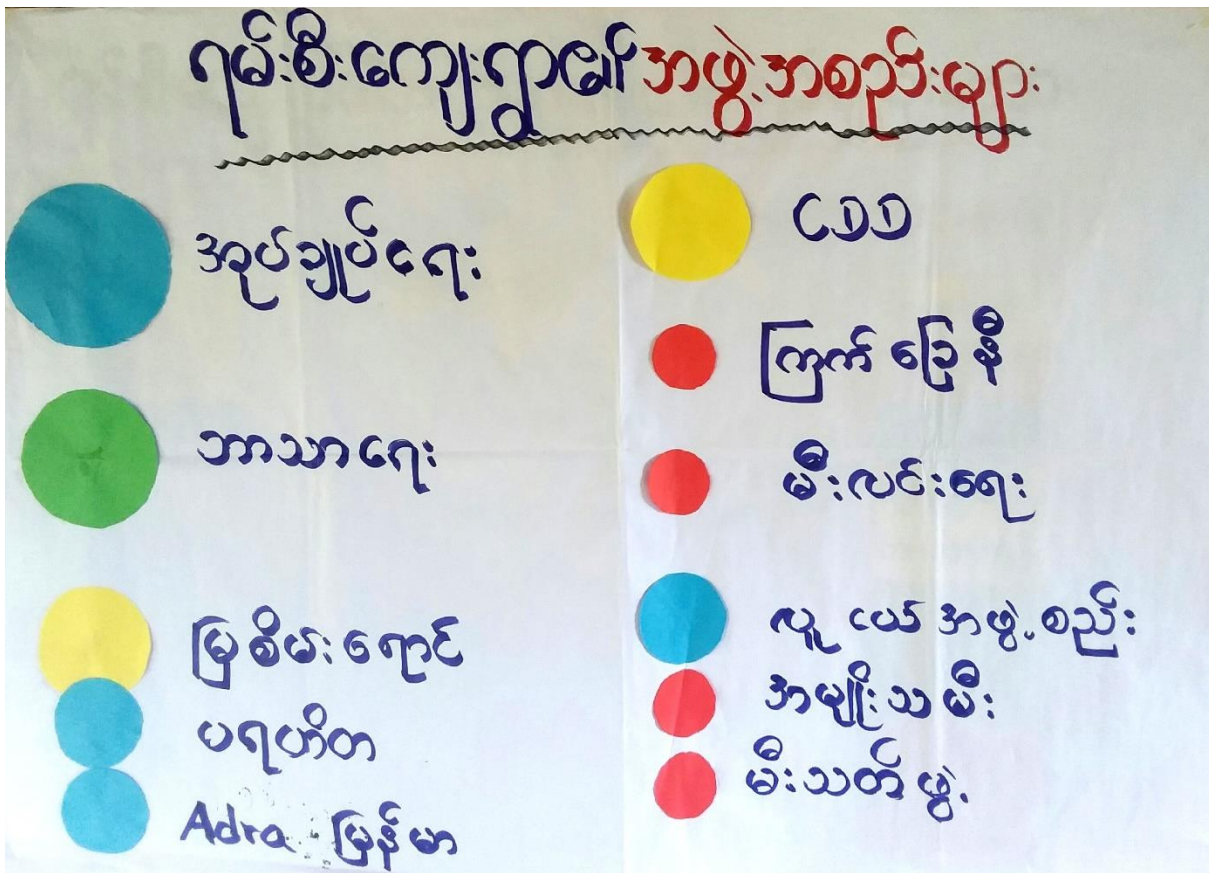 ရမ်းစီးကျေးရွာ၏ အဖွဲ့အစည်းများ
အုပ်ချုပ်ရေး
ဘာသာရေး
မြစိမ်းရောင်
ပရဟိတ
Adra မြန်မာ
CDD
ကြက်ခြေနီ
မီးလင်းရေး
လူငယ်အဖွဲ့စည်း
အမျိုးသမီး
မီးသတ်ဖွဲ့